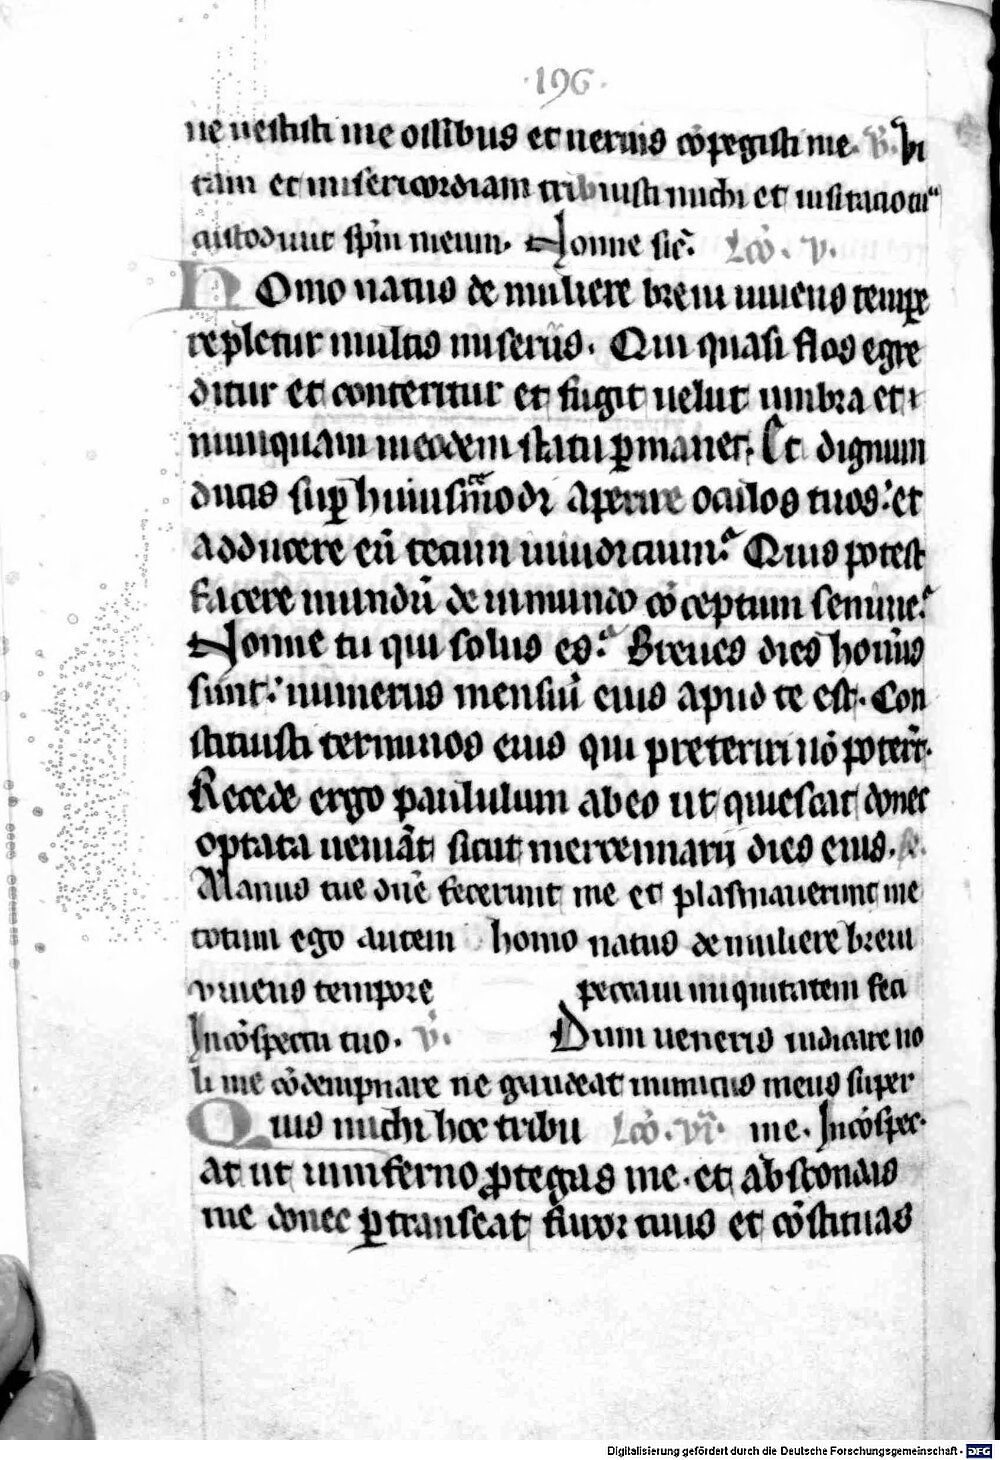 ·196·
ne uestisti me ossibus et neruis cōpegisti me. V̄. Vi
tam et misericordiam tribuisti michi et uisitatio tu
custodiuit sp̄m meum. Nonne sic̄. Lcō. v.
HOmo natus de muliere breui uiuens tempe
repletur multis miseriis. Qui quasi flos egre
ditur et conteritur et fugit uelut umbra et
nunquam in eodem statu ꝑmanet. Et dignum
ducis suꝑ huiuscemodi aperire oculos tuos: et
adducere eū tecum in iudicium? Quis potest
facere mundū de inmundo cōceptum semine?
Nonne tu qui solus es? Breues dies hoīnis
sunt: numerus mensiū eius apud te est. Con
stituisti terminos eius qui preteriri nō poter̄t.
Recede ergo paululum ab eo ut quiescat donec
optata ueniāt sicut mercennarii dies eius.
Manus tue dn̄e fecerunt me et plasmauerunt me
totum ego autem homo natus de muliere breui
viuens tempore peccaui iniquitatem feci
Incōspectu tuo. V̄. Dum ueneris iudicare no
li me cōdempnare ne gaudeat inimicus meus super
Quis michi hoc tribu Lcō. vi. me. Incōspec.
at ut in inferno ꝓtegas me. et abscondas
me donec ꝑtranseat furor tuus et cōstituas
Digitalisierung gefördert durch die Deutsche Forschungsgemeinschaft - DFG